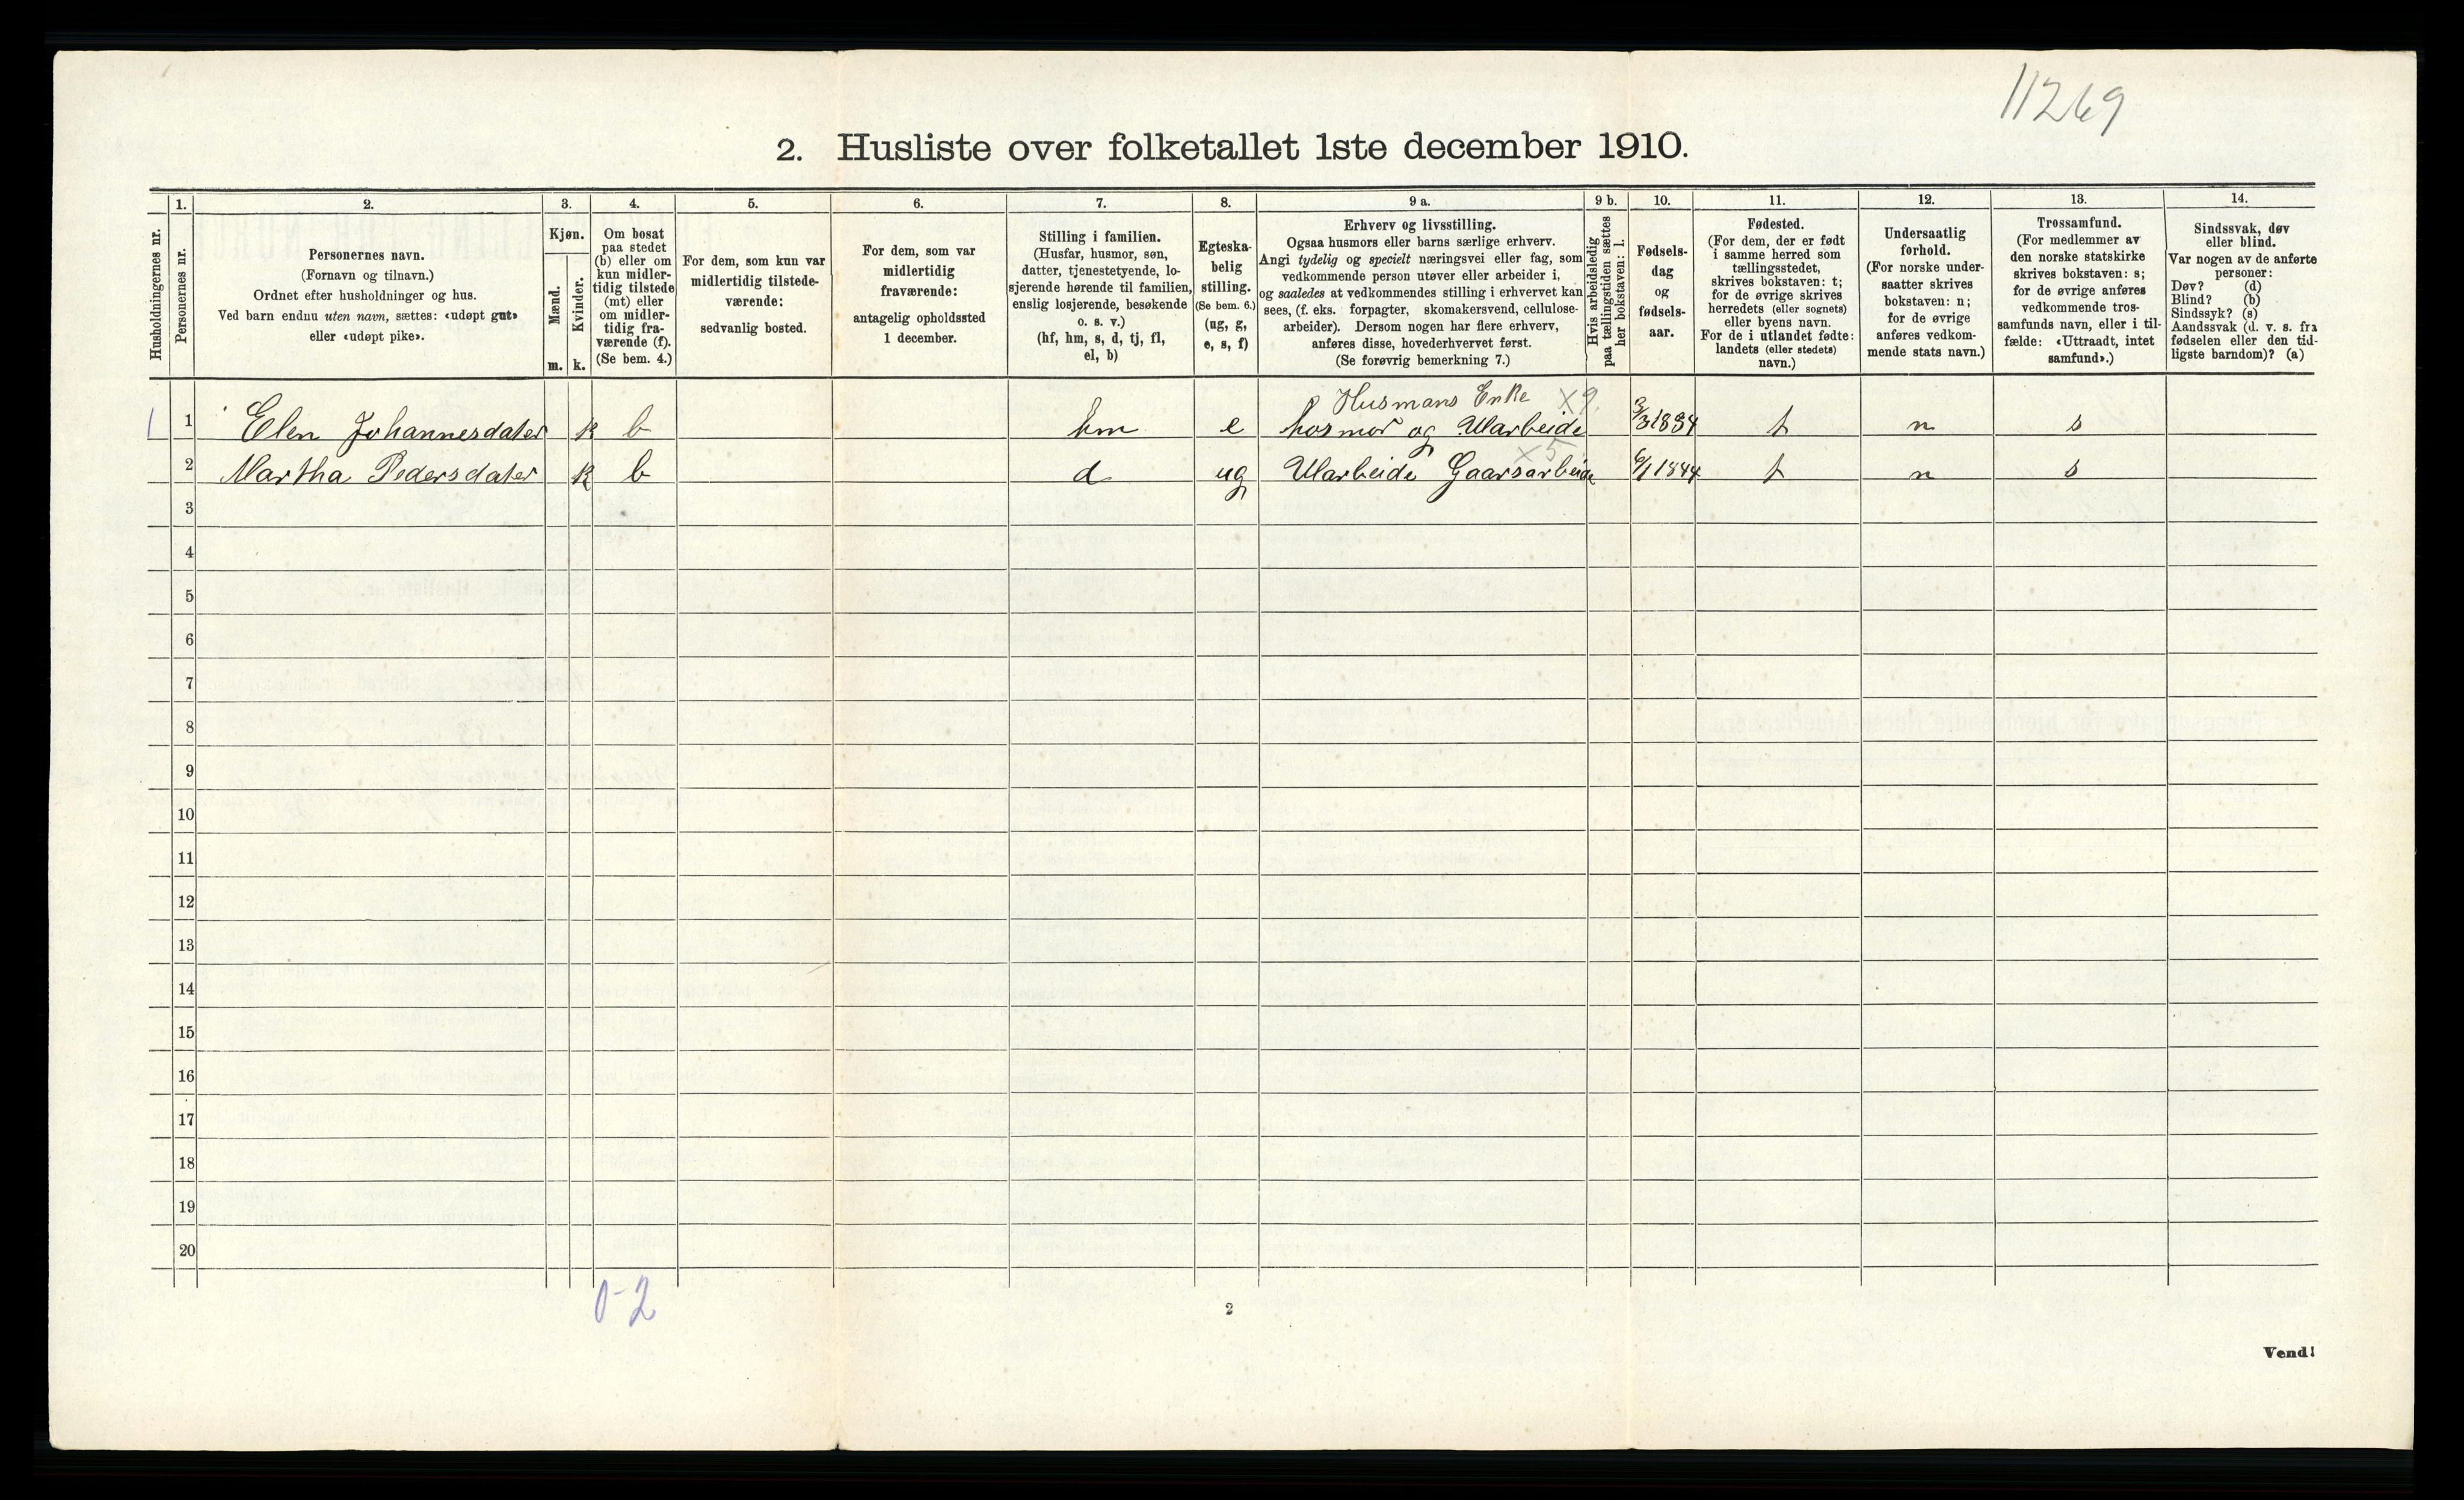 11269
2. Husliste over folketallet 1ste december 1910.
Husholdningernes nr.
1.
Personernes nr.
2.
Personernes navn.
(Fornavn og tilnavn.)
Ordnet efter husholdninger og hus.
Ved barn endnu uten navn, sættes: «udøpt gut»
eller «udøpt pike».
3.
Kjøn.
Mænd.
m.
Kvinder.
k.
4.
Om bosat
paa stedet
(b) eller om
kun midler-
tidig tilstede
(mt) eller
om midler-
tidig fra-
værende (f).
(Se bem. 4.)
5.
For dem, som kun var
midlertidig tilstede-
værende:
sedvanlig bosted.
6.
For dem, som var
midlertidig
fraværende:
antagelig opholdssted
1 december.
7.
Stilling i familien.
(Husfar, husmor, søn,
datter, tjenestetyende, lo-
sjerende hørende til familien,
enslig losjerende, besøkende
o. s. v.)
(hf, hm, s, d, tj, fl,
el, b)
8.
Egteska-
belig
stilling.
(Se bem. 6.)
(ug, g,
e, s, f)
9 a.
Erhverv og livsstilling.
Ogsaa husmors eller barns særlige erhverv.
Angi tydelig og specielt næringsvei eller fag, som
vedkommende person utøver eller arbeider i,
og saaledes at vedkommendes stilling i erhvervet kan
sees, (f. eks. forpagter, skomakersvend, cellulose-
arbeider). Dersom nogen har flere erhverv,
anføres disse, hovederhvervet først.
(Se forøvrig bemerkning 7.)
9 b.
Hvis arbeidsledig
paa tællingstiden sættes
her bokstaven: l.
10.
Fødsels-
dag
og
fødsels-
aar.
11.
Fødested.
(For dem, der er født
i samme herred som
tællingsstedet,
skrives bokstaven: t;
for de øvrige skrives
herredets (eller sognets)
eller byens navn.
For de i utlandet fødte:
landets (eller stedets)
navn.)
12.
Undersaatlig
forhold.
(For norske under-
saatter skrives
bokstaven: n;
for de øvrige
anføres vedkom-
mende stats navn.)
13.
Trossamfund.
(For medlemmer av
den norske statskirke
skrives bokstaven: s;
for de øvrige anføres
vedkommende tros-
samfunds navn, eller i til-
fælde: «Uttraadt, intet
samfund».)
14.
Sindssvak, døv
eller blind.
Var nogen av de anførte
personer:
Døv? (d)
Blind? (b)
Sindssyk? (s)
Aandssvak (d. v. s. fra
fødselen eller den tid-
ligste barndom)? (a)
Husmans Enke x9.
1 1 Elen Johannesdater k b hm e hosmor og Uarbeide t n s
x5
2 Martha Pedersdater k b d ug Uarbeide Gaarsarbeide 6/1 1844 t n s
3
4
5
6
7
8
9
10
11
12
13
14
15
16
17
18
19
20
0-2
2
Vend!